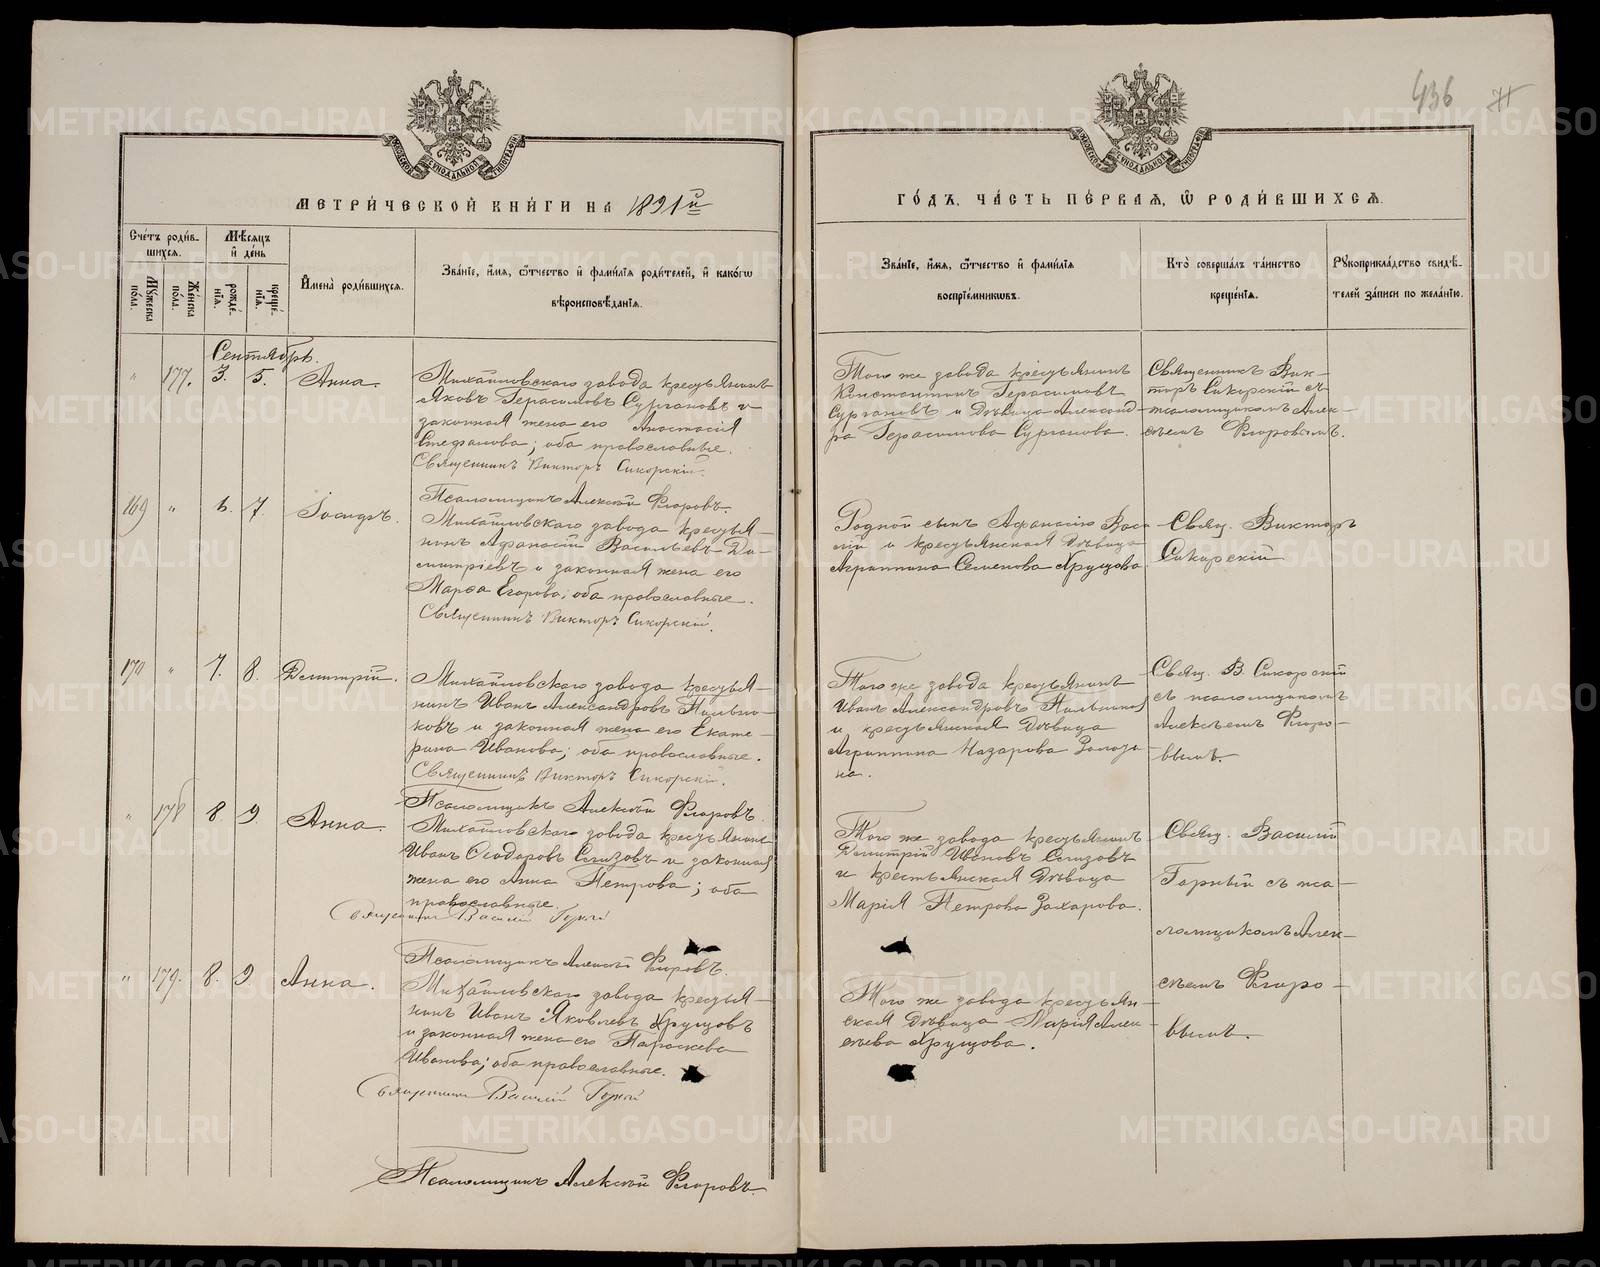 436
МЕТРИ́ЧЕСКОЙ КНИ́ГИ НА 1891й
ГО́ДЪ, ЧА́СТЬ ПЕ́РВАЯ, Ѿ РОДИ́ВШИХСЯ.
Сче́тъ роди́в-
шихся.
Мѣ́сяцъ
и҆ де́нь
Му́жеска по́ла.
Же́нска по́ла.
рожде́-нїя.
креще́-нїя.
И҆мена̀ роди́вшихся.
Зва́нїе, и҆́мя, ѻ҆́тчество и҆ фами́лїя роди́телей, и҆ како́гѡ
вѣроисповѣ́данїя.
Зва́нїе, и҆́мя, ѻ҆́тчество и҆ фами́лїя
воспрїе́мниковъ.
Кто̀ соверша́лъ та́инство
креще́нїя.
Рꙋкоприкла́дство свидѣ́-
телей за́писи по жела́нїю.
Сентябрь.
" 177. 3. 5. Анна.
Михайловскаго завода крестьянинъ
Яковъ Герасимовъ Сургановъ и
законная жена его Анастасія
Стефанова; оба православные.
Священникъ Викторъ Сикорскій.
Псаломщикъ Алексѣй Флоровъ.
Того же завода крестьянинъ
Константинъ Герасимовъ
Сургановъ и дѣвица Александ-
ра Герасимова Сурганова.
Священникъ Вик-
торъ Сикорскій съ
псаломщикомъ Алек-
сѣемъ Флоровымъ.
169 " 6. 7. Іосифъ.
Михайловскаго завода крестья-
нинъ Афанасій Васильевъ Ди-
митріевъ и законная жена его
Марѳа Егорова; оба православные.
Священникъ Викторъ Сикорскій.
Родной сынъ Афанасію Васи
лій и крестьянская дѣвица
Агриппина Семенова Хрущова.
Свящ. Викторъ
Сикорскій
170 " 7. 8. Димитрій.
Михайловскаго завода крестья-
нинъ Иванъ Александровъ
ковъ и законная жена его Екате-
рина Иванова; оба православные.
Священникъ Викторъ Сикорскій.
Псаломщикъ Алексѣй Флоровъ.
Того же завода крестьянинъ
Иванъ Александровъ
и крестьянская дѣвица
Агриппина Назарова
на.
Свящ. В. Сикорскій
съ псаломщикомъ
Алексѣемъ Флоро-
вымъ.
" 178 8 9. Анна.
Михайловскаго завода крестьянинъ
Иванъ Ѳеодоровъ Слизовъ и законная
жена его Анна Петрова; оба
православные.
Священникъ Василій Горный
Псаломщикъ Алексѣй Флоровъ.
Того же завода крестьянинъ
Димитрій Ивановъ Слизовъ
и крестьянская дѣвица
Марія Петрова Захарова.
Свящ. Василій
Горный съ пса-
ломщикомъ Алек-
сѣемъ Флоро-
вымъ.
" 179. 8. 9. Анна.
Михайловскаго завода крестья-
нинъ Иванъ Яковлевъ Хрущовъ
и законная жена его Параскева
Иванова; оба православные.
Священникъ Василій Горный
Псаломщикъ Алексѣй Флоровъ.
Того же завода крестьян-
ская дѣвица Марія Алек-
сѣева Хрущова.
METRIKI.GASO-URAL.RU